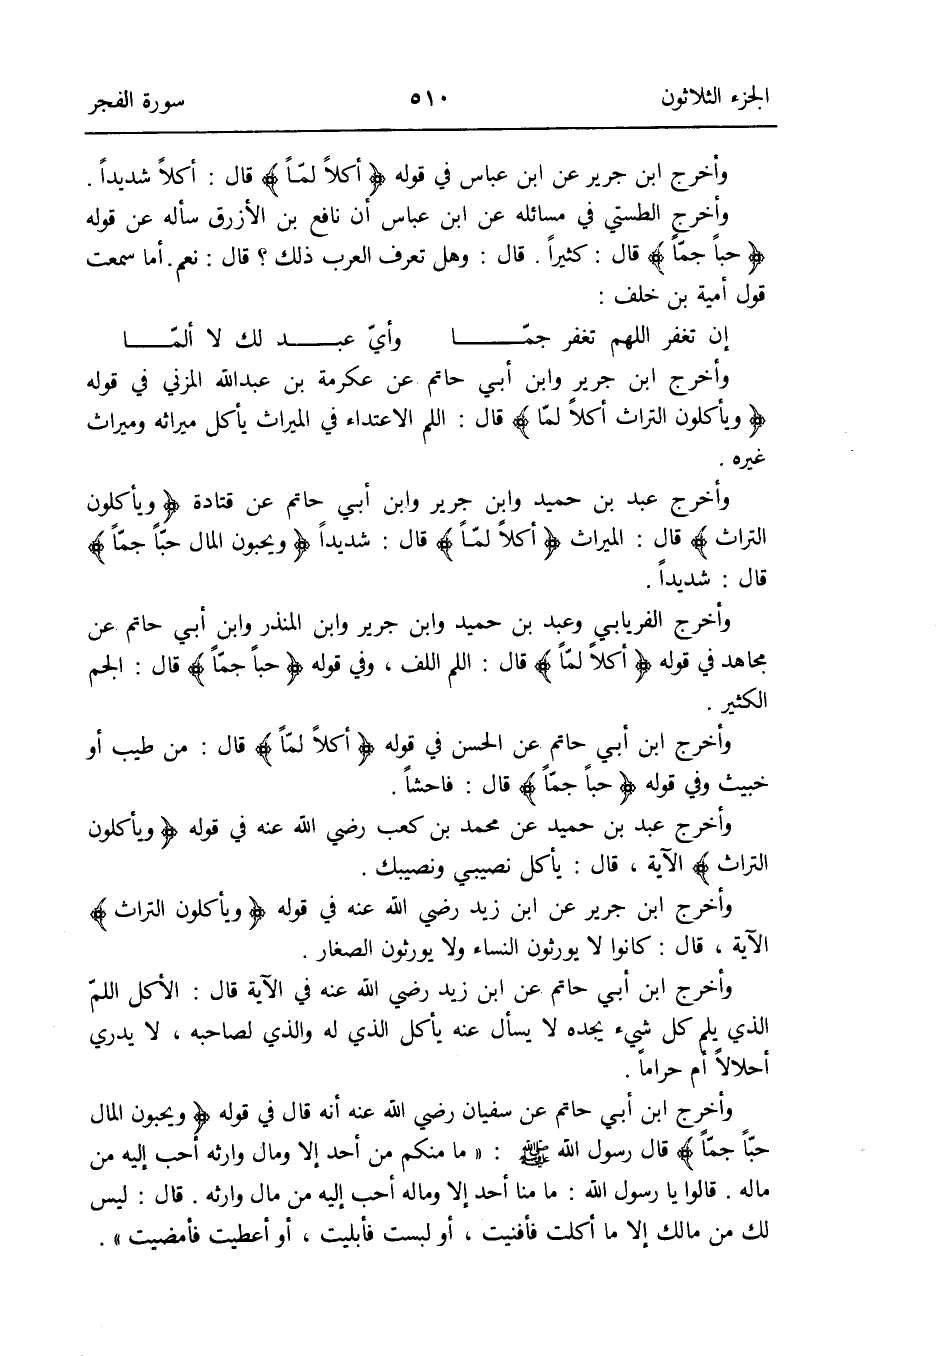 الجزء الثلاثون ٥١٠ سورة الفجر
وأخرج ابن جرير عن ابن عباس في قوله ﴿ أكلاً لمّاً ﴾ قال : أكلاً شديداً .
وأخرج الطستي في مسائله عن ابن عباس أن نافع بن الأزرق سأله عن قوله
﴿ حباً جمّاً ﴾ قال : كثيراً . قال : وهل تعرف العرب ذلك ؟ قال : نعم . أما سمعت
قول أمية بن خلف :
إن تغفر اللهم تغفر جمّـــــا وأيّ عبـــــد لك لا ألمّـــــا
وأخرج ابن جرير وابن أبي حاتم عن عكرمة بن عبدالله المزني في قوله
﴿ ويأكلون التراث أكلاً لمّا ﴾ قال : اللم الاعتداء في الميراث يأكل ميراثه وميراث
غيره .
وأخرج عبد بن حميد وابن جرير وابن أبي حاتم عن قتادة ﴿ ويأكلون
التراث ﴾ قال : الميراث ﴿ أكلاً لمّاً ﴾ قال : شديداً ﴿ ويحبون المال حبّاً جمّاً ﴾
قال : شديداً .
وأخرج الفريابي وعبد بن حميد وابن جرير وابن المنذر وابن أبي حاتم عن
مجاهد في قوله ﴿ أكلاً لمّاً ﴾ قال : اللم اللف ، وفي قوله ﴿ حباً جمّاً ﴾ قال : الجم
الكثير .
وأخرج ابن أبي حاتم عن الحسن في قوله ﴿ أكلاً لمّاً ﴾ قال : من طيب أو
خبيث وفي قوله ﴿ حباً جمّاً ﴾ قال : فاحشاً .
وأخرج عبد بن حميد عن محمد بن كعب رضي الله عنه في قوله ﴿ ويأكلون
التراث ﴾ الآية ، قال : يأكل نصيبي ونصيبك .
وأخرج ابن جرير عن ابن زيد رضي الله عنه في قوله ﴿ ويأكلون التراث ﴾
الآية ، قال : كانوا لا يورثون النساء ولا يورثون الصغار .
وأخرج ابن أبي حاتم عن ابن زيد رضي الله عنه في الآية قال : الأكل اللمّ
الذي يلم كل شيء يجده لا يسأل عنه يأكل الذي له والذي لصاحبه ، لا يدري
أحلالاً أم حراماً .
وأخرج ابن أبي حاتم عن سفيان رضي الله عنه أنه قال في قوله ﴿ ويحبون المال
حبّاً جمّاً ﴾ قال رسول الله ﷺ : « ما منكم من أحد إلا ومال وارثه أحب إليه من
ماله . قالوا يا رسول الله : ما منا أحد إلا وماله أحب إليه من مال وارثه . قال : ليس
لك من مالك إلا ما أكلت فأفنيت ، أو لبست فأبليت ، أو أعطيت فأمضيت » .